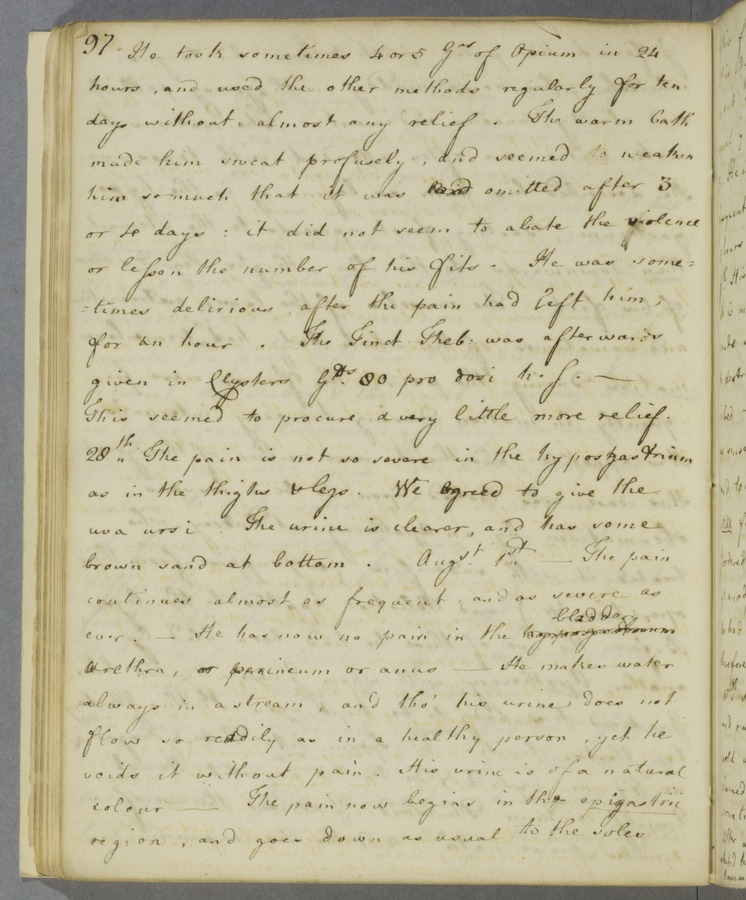 97. He took sometimes 4 or 5 Grs of Opium in 24
hours, and used the other methods regularly for ten
days without almost any relief. The warm bath
made him sweat profusely, and seemed to weaken
him so much that it was omitted after 3
or 4 days: it did not seem to abate the violence
or lessen the number of his fits. He was some=
=times delirious after the pain had left him,
for an hour. The Tinct. Theb: was afterwards
given in Clysters Gtts. 80 pro dosi h. s. —
This seemed to procure a very little more relief.
28th The pain is not so severe in the hypogastrium
as in the thighs & legs. We agreed to give the
uva ursi. The urine is clearer, and has some
brown sand at bottom. Augst. 1st — The pain
continues almost as frequent, and as severe as
ever. — He has now no pain in the hypogastrium bladder
urethra, or perineum or anus — He makes water
always in a stream, and tho' his urine does not
flow so readily as in a healthy person, yet he
voids it without pain. His urine is of a natural
colour — The pain now begins in the epigastric
region, and goes down as usual to the soles